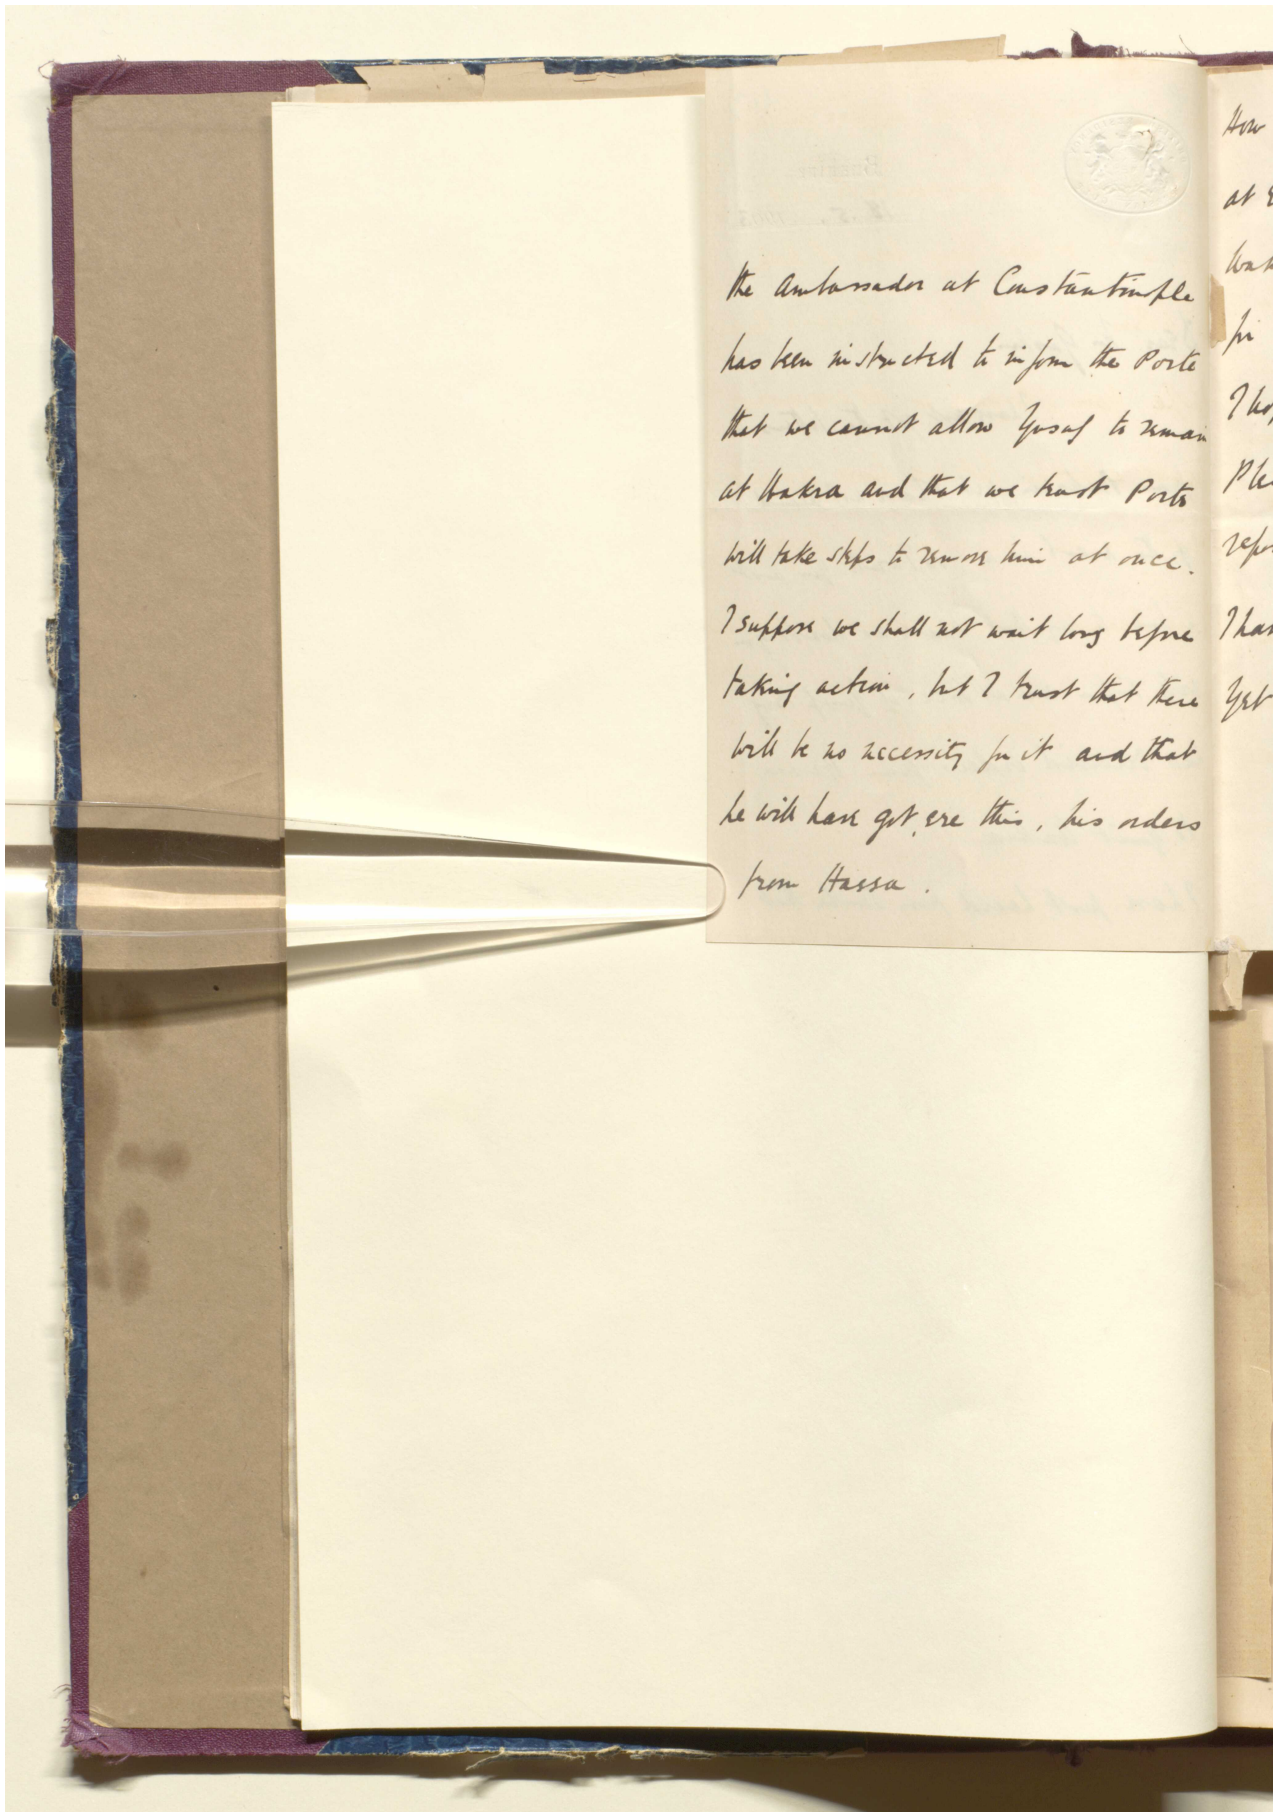 the Ambassador at Constantinople
has been instructed to inform the Porte
that we cannot allow Yusuf to remain
at Wakra and that we trust Porte
will take steps to remove him at once.
I suppose we shall not wait long before
taking action, but I trust that there
will be no necessity for it and that
he will have got, ere this, his orders
from Hassa.
How
at
for
repo
Yet